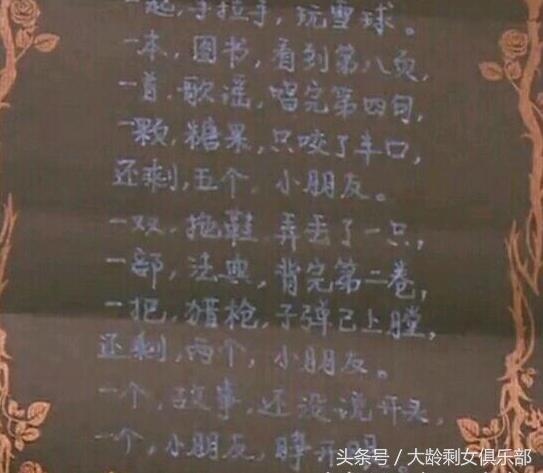 一起,手拉手,玩雪球。
一本,图书,看到第八页,
一首,歌谣,唱完第四句,
一颗,糖果,只咬了半口,
还剩,五个,小朋友。
一双,拖鞋,弄丢了一只,
一部,法典,背完第二卷,
一把,猎枪,子弹已上膛,
还剩,两个,小朋友。
一个,故事,还没说开头,
一个,小朋友,睁开眼
头条号/大龄剩女俱乐部